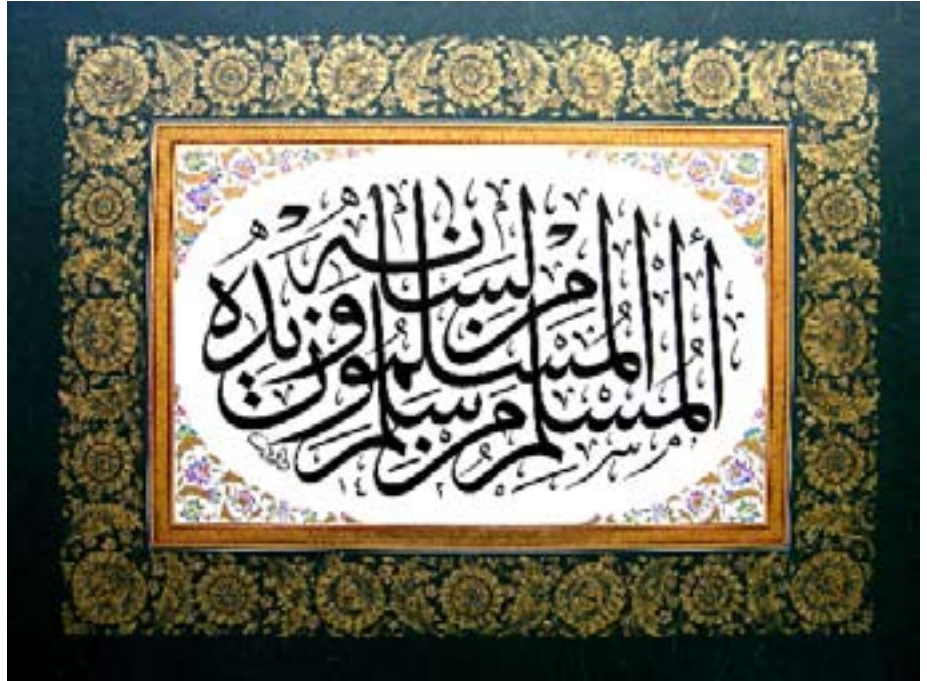 ألمُسْلِمُ مَنْ سَلِمَ المُسْلِمُونَ مِنْ لِسَانِهِ وَيَدِهِ